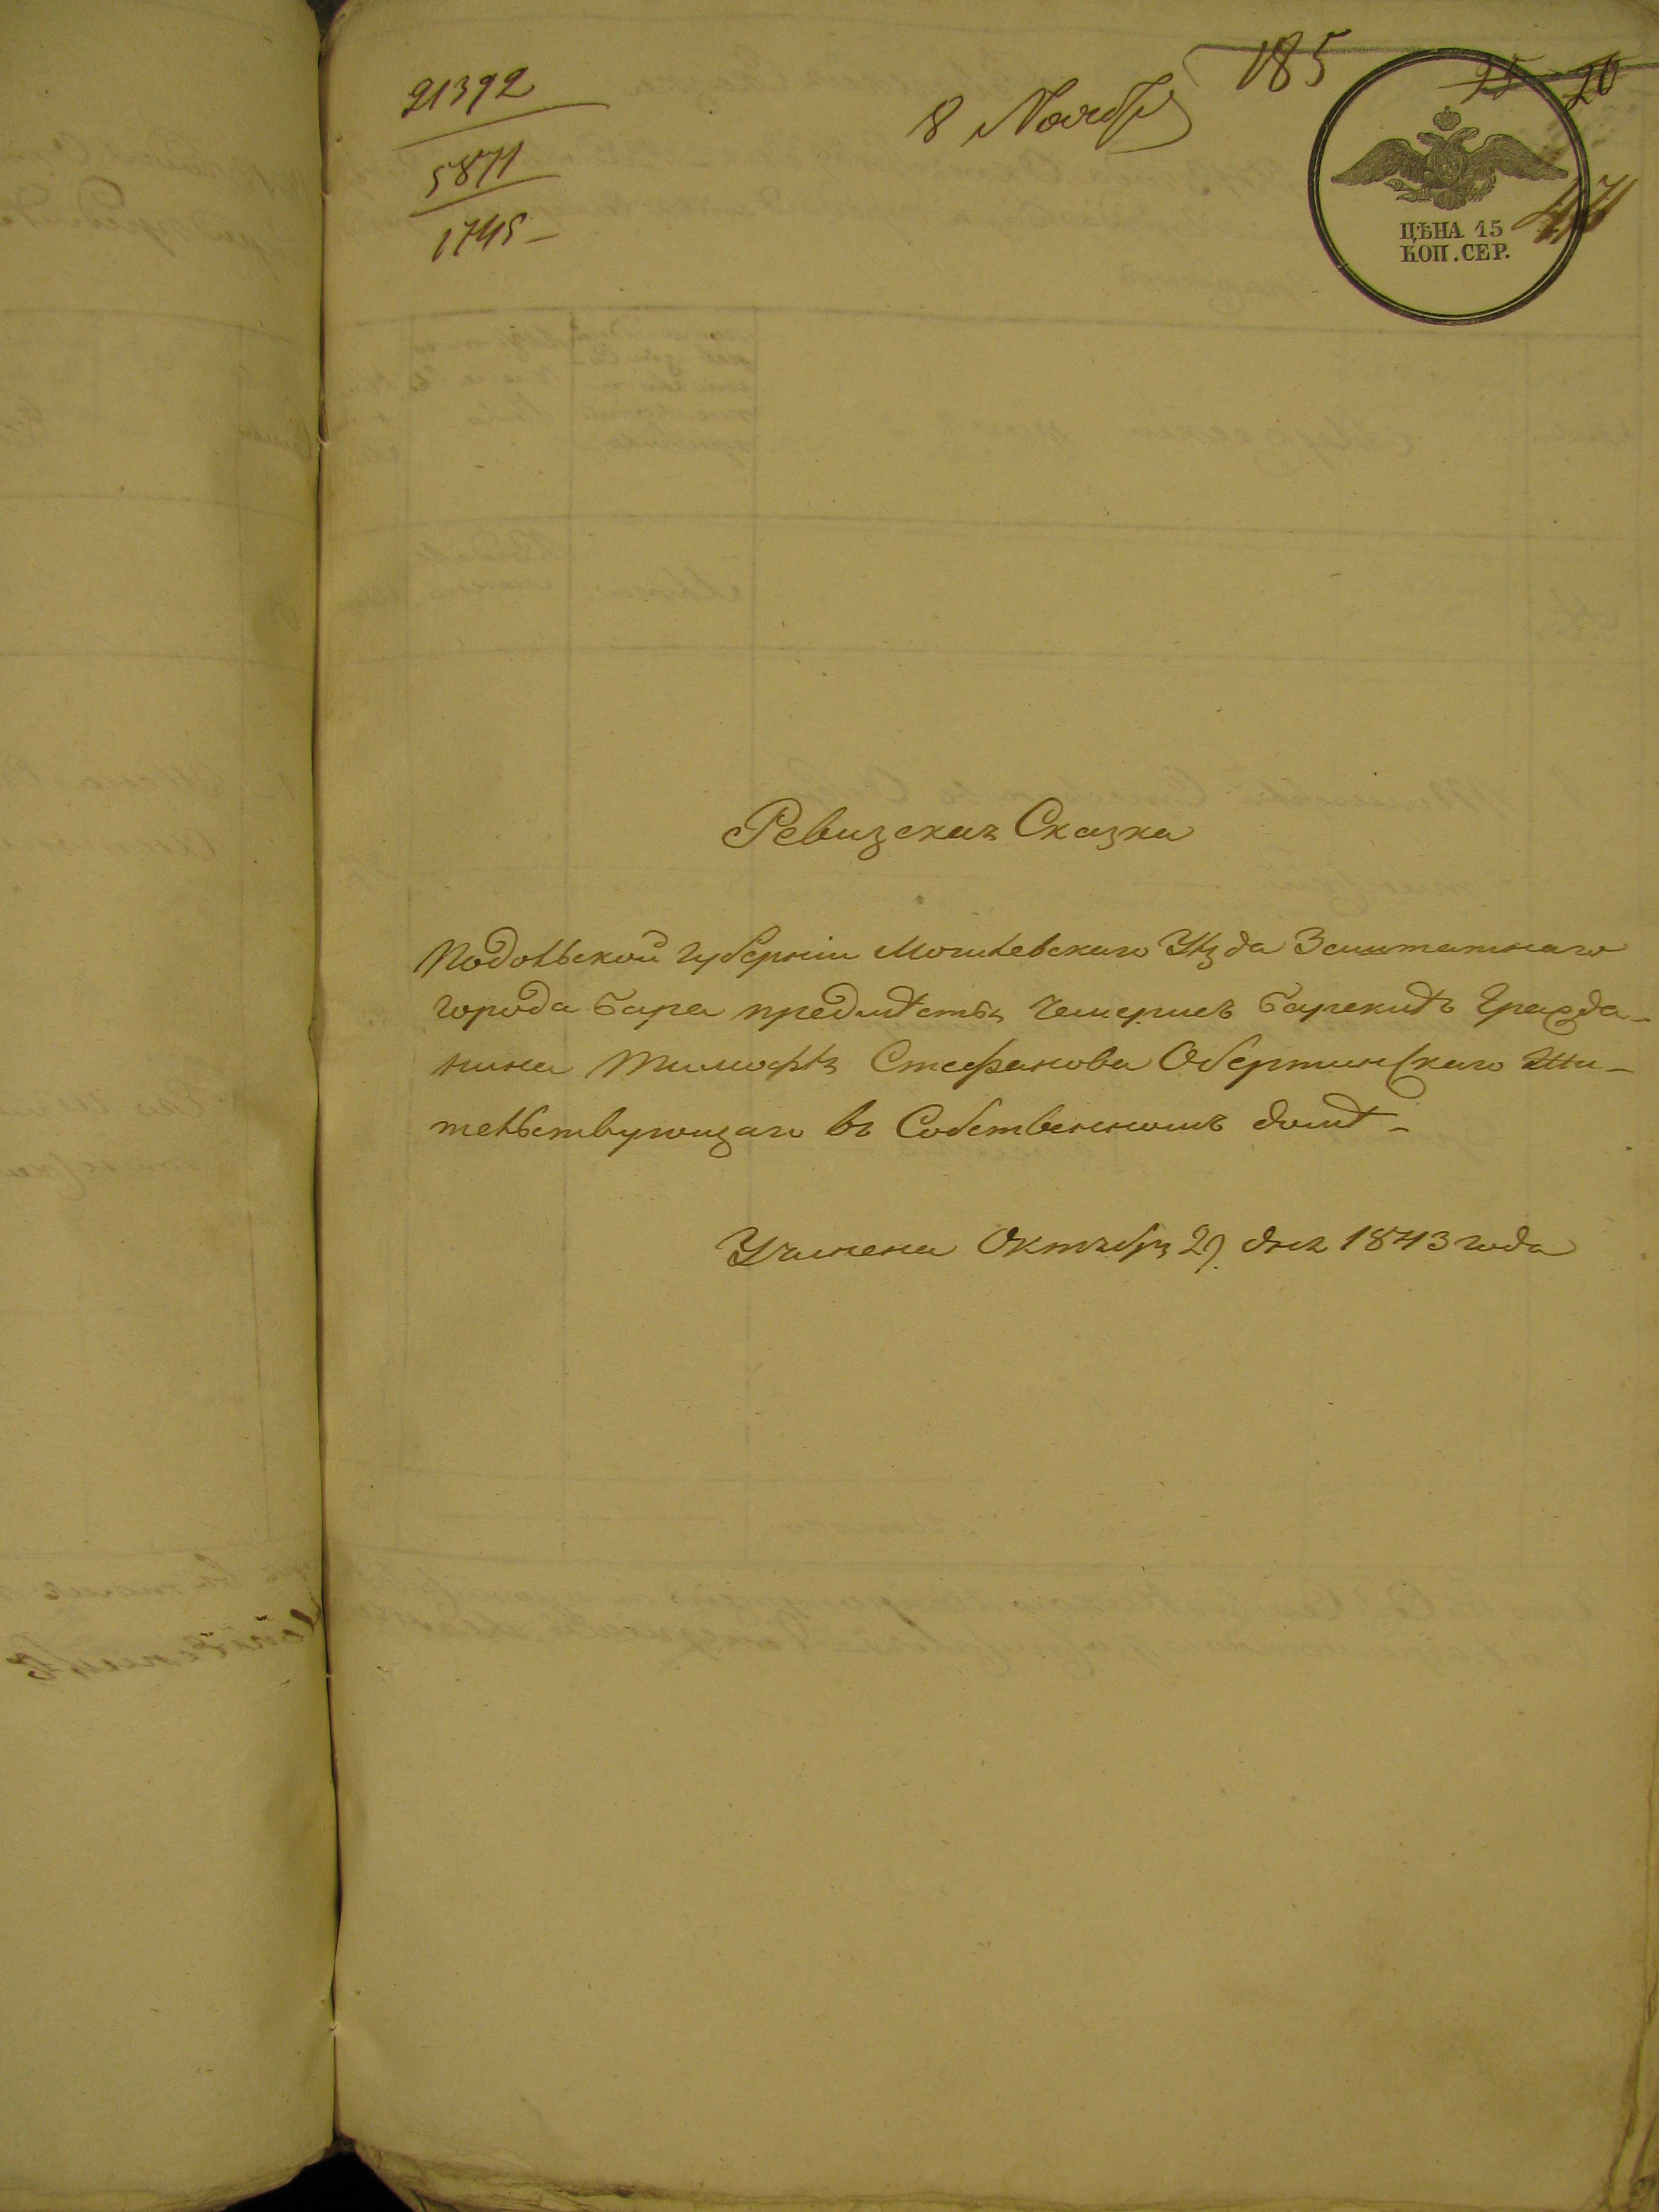 21392
5871
1745
8 Ноября
185
25 20
ЦѢНА 15
КОП. СЕР.
Ревизская Сказка
Подольской губерніи Могилевскаго Уѣзда Заштатнаго
города Бара предмѣстья Чемерисъ Барскихъ Гражда-
нина Тимофѣя Стефанова Обертинскаго Жи-
тельствующаго въ Собственномъ домѣ
Учинена Октября 29 дня 1843 года